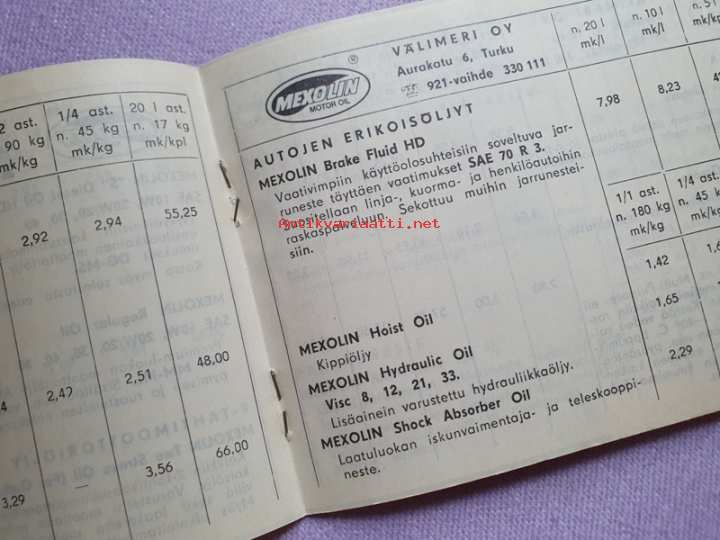 2 ast.
90 kg
mk/kg
1/4 ast.
n. 45 kg
mk/kg
20 l ast.
n. 17 kg
mk/kpl
2,92
2,94
55,25
2,51
48,00
3,29
—
3,56
66,00
®
MEXOLIN
MOTOR OIL
VÄLIMERI OY
Aurakatu 6, Turku
☎ 921-vaihde 330 111
n. 20 l
mk/l
n. 10 l
mk/l
n. 5 l
mk/
AUTOJEN ERIKOISÖLJYT
MEXOLIN Brake Fluid HD
Vaativimpiin käyttöolosuhteisiin soveltuva jar-
runeste täyttäen vaatimukset SAE 70 R 3.
Suositellaan linja-, kuorma- ja henkilöautoihin
raskaspalveluun. Sekottuu muihin jarrunestei-
siin.
7,98
8,23
Antikvariaatti.net
1/1 ast.
n. 180 kg
mk/kg
1/4 ast.
n. 45 k
mk/kg
MEXOLIN Hoist Oil
Kippiöljy
1,42
1,6
MEXOLIN Hydraulic Oil
Visc 8, 12, 21, 33.
Lisäainein varustettu hydrauliikkaöljy.
1,65
MEXOLIN Shock Absorber Oil
Laatuluokan iskunvaimentaja- ja teleskooppi-
neste.
2,29